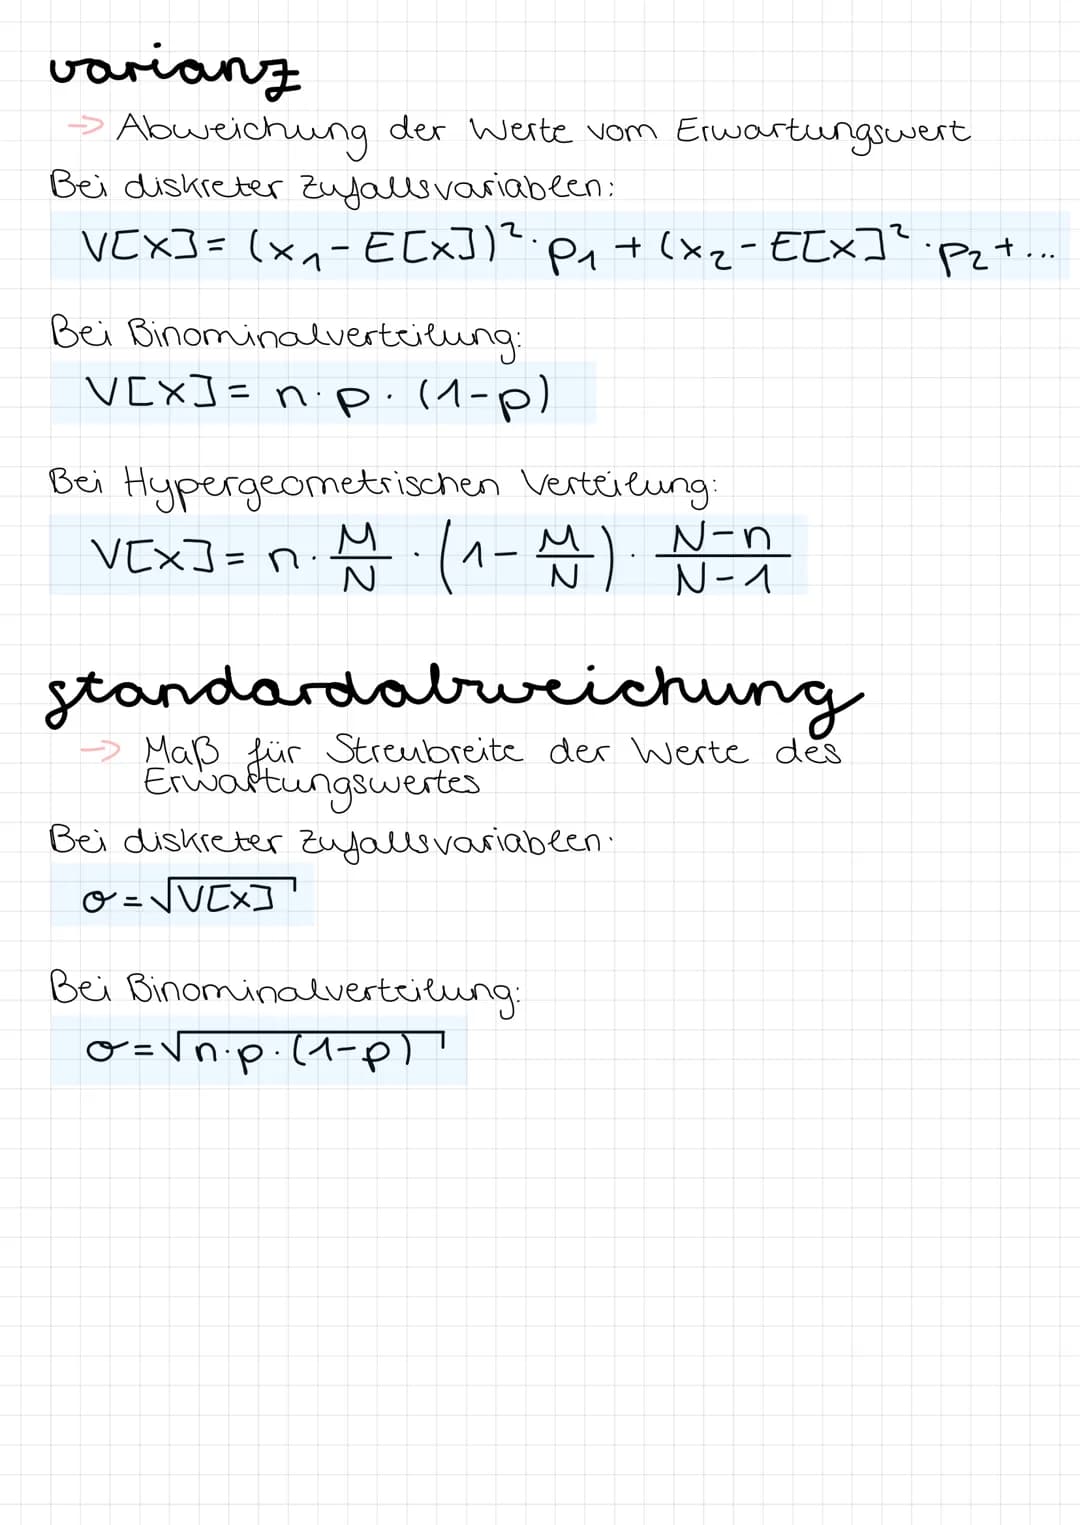 varianz
→ Abweichung der Werte vom Erwartungswert
Bei diskreter Zufallsvariablen:
V[X] = (x₁ - E[X])² · p₁ + (x₂ - E[X]² · p₂ + ...
Bei Binominalverteilung:
V[X] = n · p · (1-p)
Bei Hypergeometrischen Verteilung:
V[X] = n · M/N · (1 - M/N) · N-n/N-1
standardabweichung
→ Maß für Streubreite der Werte des
Erwartungswertes
Bei diskreter Zufallsvariablen:
σ = √V[X]
Bei Binominalverteilung:
σ = √n·p·(1-p)